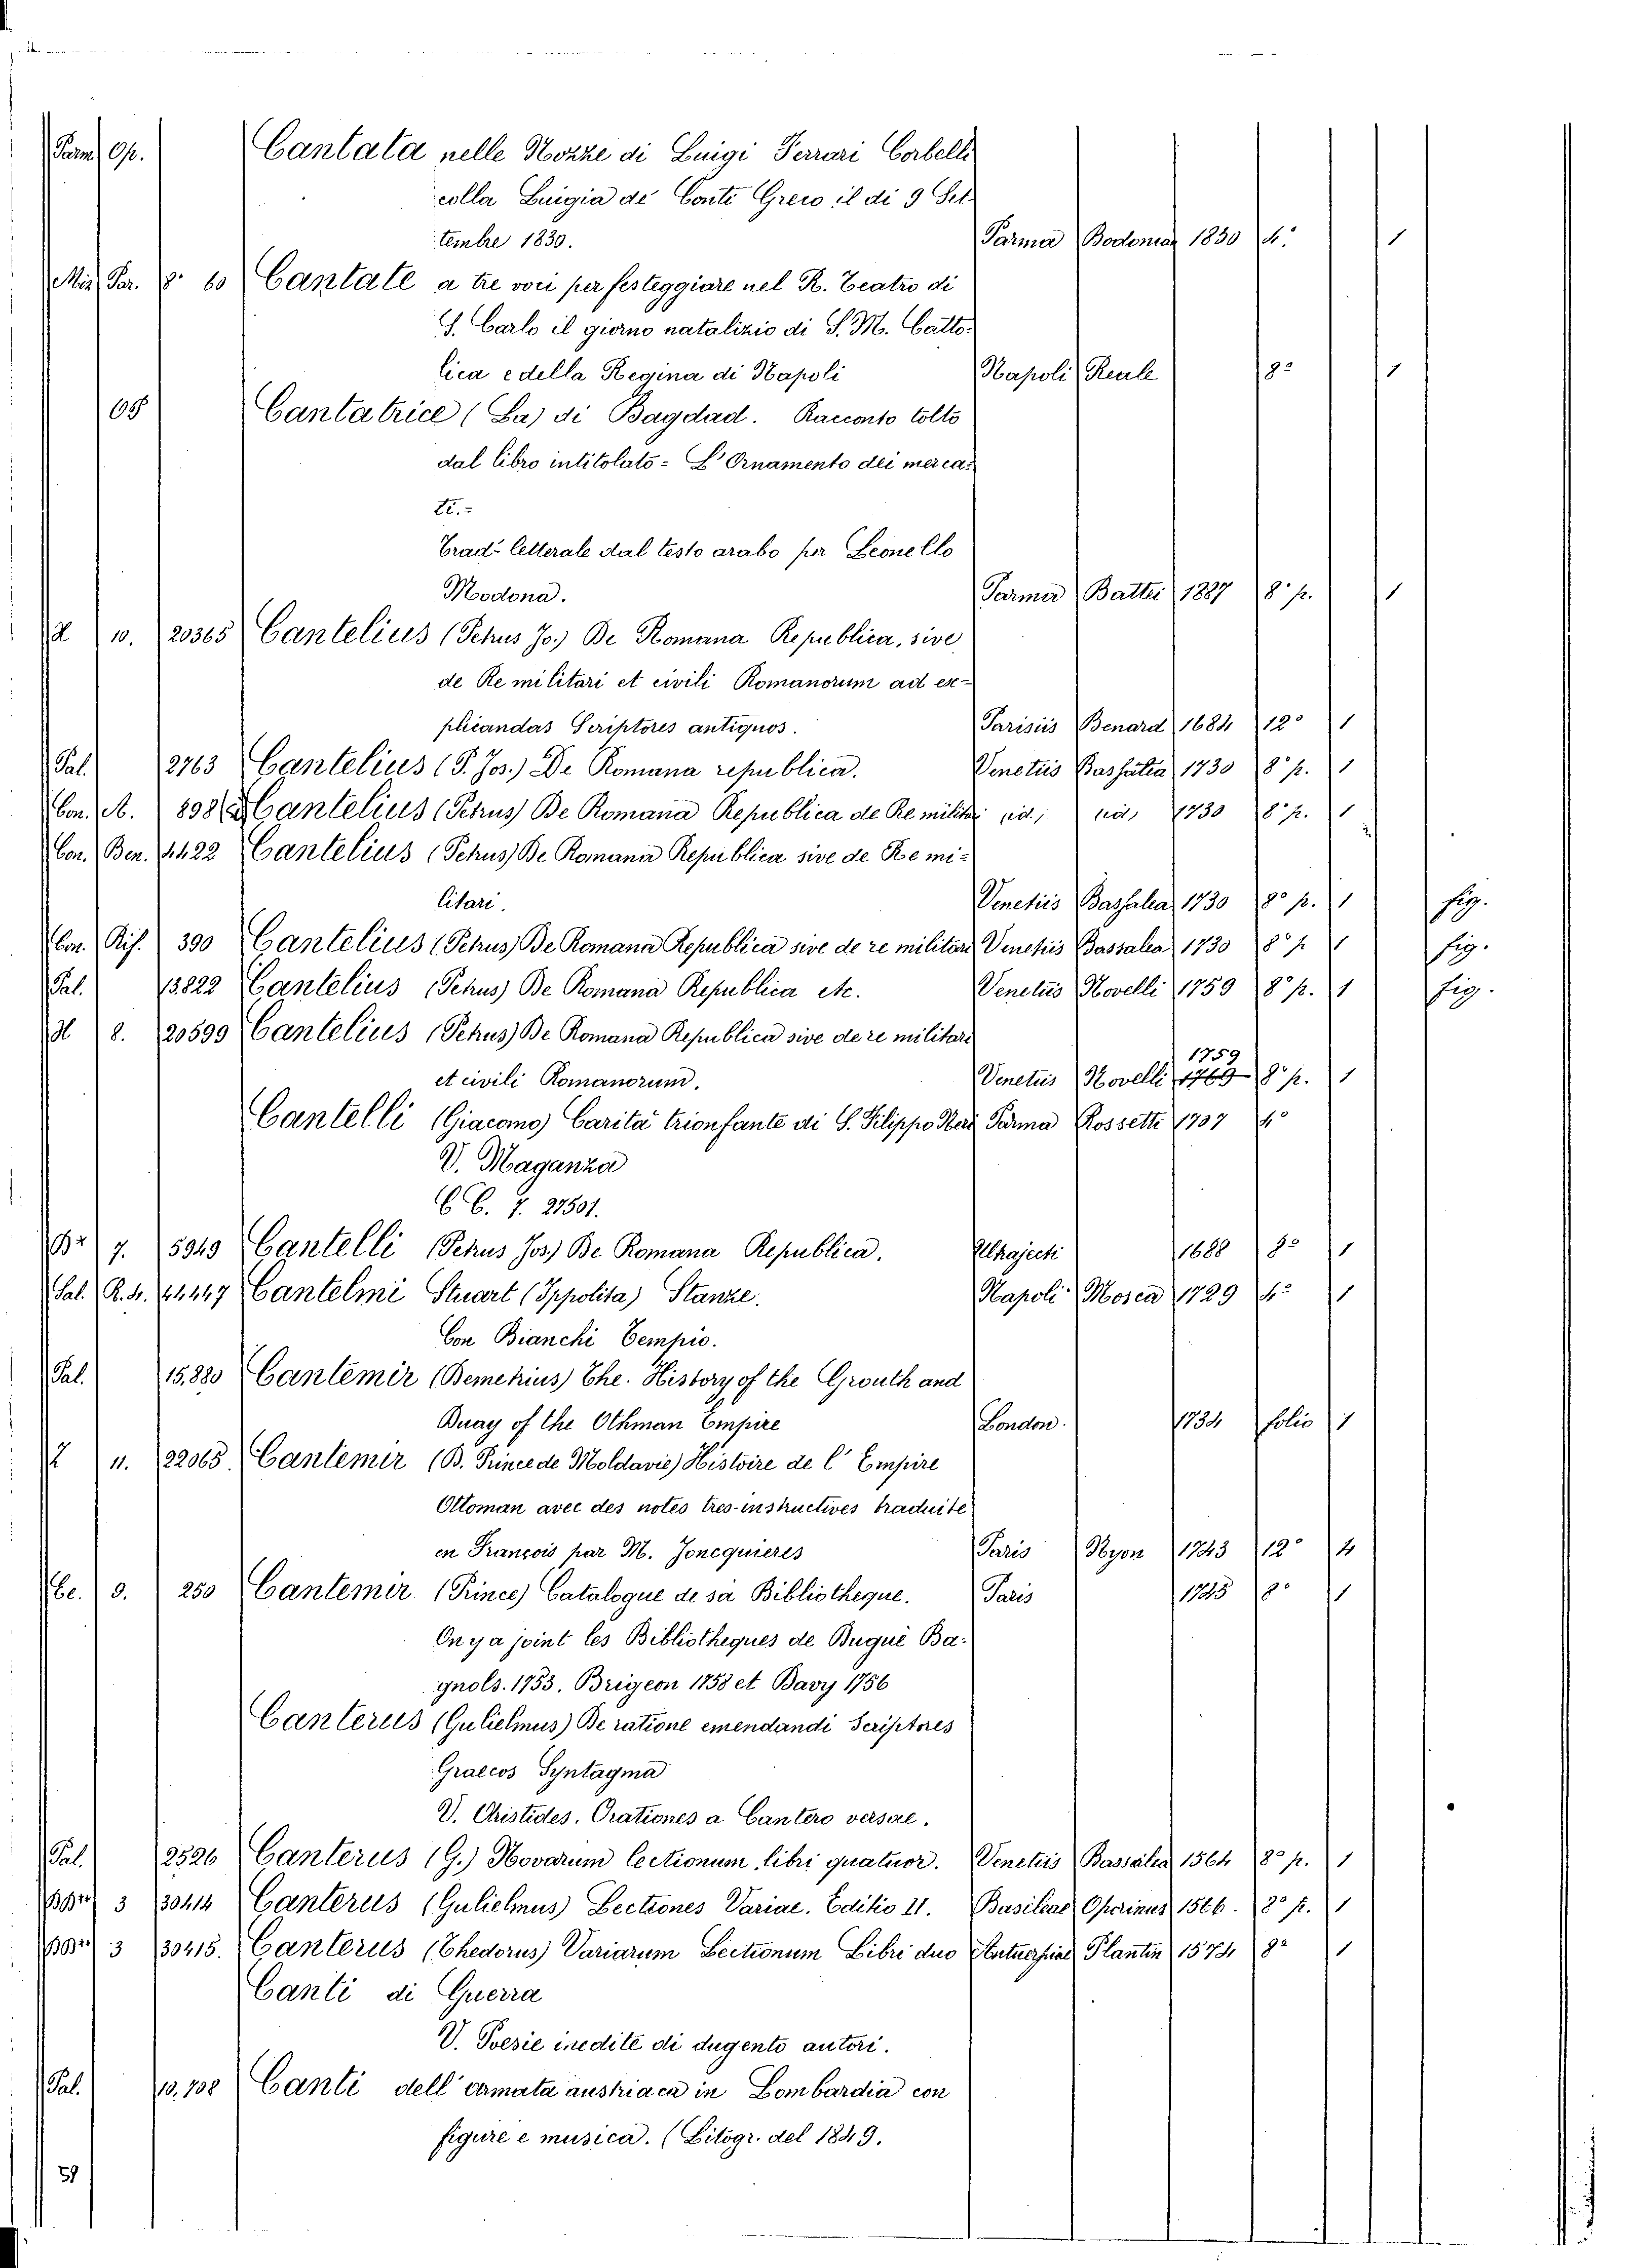 Parm. Op. Cantata nelle Nozze di Luigi Ferrari Corbelli
colla Luigia de' Conti Greco il di 9 Set-
tembre 1830. Parma Bodonian 1830 4° 1
Mis. Par. 8° 60 Cantate a tre voci per festeggiare nel R. Teatro di
S. Carlo il giorno natalizio di S. M. Catto-
lica e della Regina di Napoli Napoli Reale 8° 1
Cantatrice (La) di Bagdad. Racconto tolto
dal libro intitolato = L'Ornamento dei merca-
ti. =
Trad. letterale dal testo arabo per Leonello
Modona. Parma Battei 1887 8° p. 1
10. 20365 Cantelius (Petrus Jo.) De Romana Republica, sive
de Re militari et civili Romanorum ad ex-
plicandas Scriptores antiquos. Parisiis Benard 1684 12° 1
Pal. 2763 Cantelius (P. Jos.) De Romana republica. Venetiis Bassalia 1730 8° p. 1
Con. A. 898 Cantelius (Petrus) De Romana Republica de Re militari id. id. 1730 8° p. 1
Con. Ben. 4422 Cantelius (Petrus) De Romana Republica sive de Re mi-
litari. Venetiis Bassalea 1730 8° p. 1 fig.
Con. Rif. 390 Cantelius (Petrus) De Romana Republica sive de re militari Venetiis Bassalea 1730 8° p. 1 fig.
Pal. 13822 Cantelius (Petrus) De Romana Republica etc. Venetiis Novelli 1759 8° p. 1 fig.
8. 20599 Cantelius (Petrus) De Romana Republica sive de re militari
et civili Romanorum. Venetiis Novelli 1759 1769 8° p. 1
Cantelli (Giacomo) Carità trionfante di S. Filippo Neri Parma Rossetti 1707 4°
V. Maganza
CC. 7. 27501.
7. 5949 Cantelli (Petrus Jos.) De Romana Republica. Ultrajecti 1688 8° 1
Sal. R. 4. 44447 Cantelmi Stuart (Ippolita) Stanze. Napoli Mosca 1729 4° 1
Con Bianchi Tempio.
Pal. 15,880 Cantemir (Demetrius) The History of the Grouth and
Duay of the Othman Empire London. 1734 folio 1
11. 22065. Cantemir (D. Prince de Moldavie) Histoire de l'Empire
Ottoman avec des notes tres-instructives traduite
en François par M. Joncquieres Paris Nyon 1743 12° 4
9. 250 Cantemir (Prince) Catalogue de sa Bibliotheque. Paris 1745 8° 1
On y a joint les Bibliotheques de Buguè Ba-
gnols. 1753. Brigeon 1758 et Davy 1756
Canterus (Gulielmus) De ratione emendandi Scriptores
Graecos Syntagma
V. Aristides. Orationes a Cantero versae.
Pal. 2526 Canterus (G.) Novarum lectionum, libri quatuor. Venetiis Bassalea 1564 8° p. 1
3 30414 Canterus (Gulielmus) Lectiones Variae. Editio II. Basileae Operinus 1566. 8° p. 1
3 30415. Canterus (Thedorus) Variarum Lectionum Libri duo Antuerpiae Plantin 1574 8° 1
Canti di Guerra
V. Poesie inedite di dugento autori.
Pal. 10,708 Canti dell'armata austriaca in Lombardia con
figure e musica. (Litogr. del 1849.